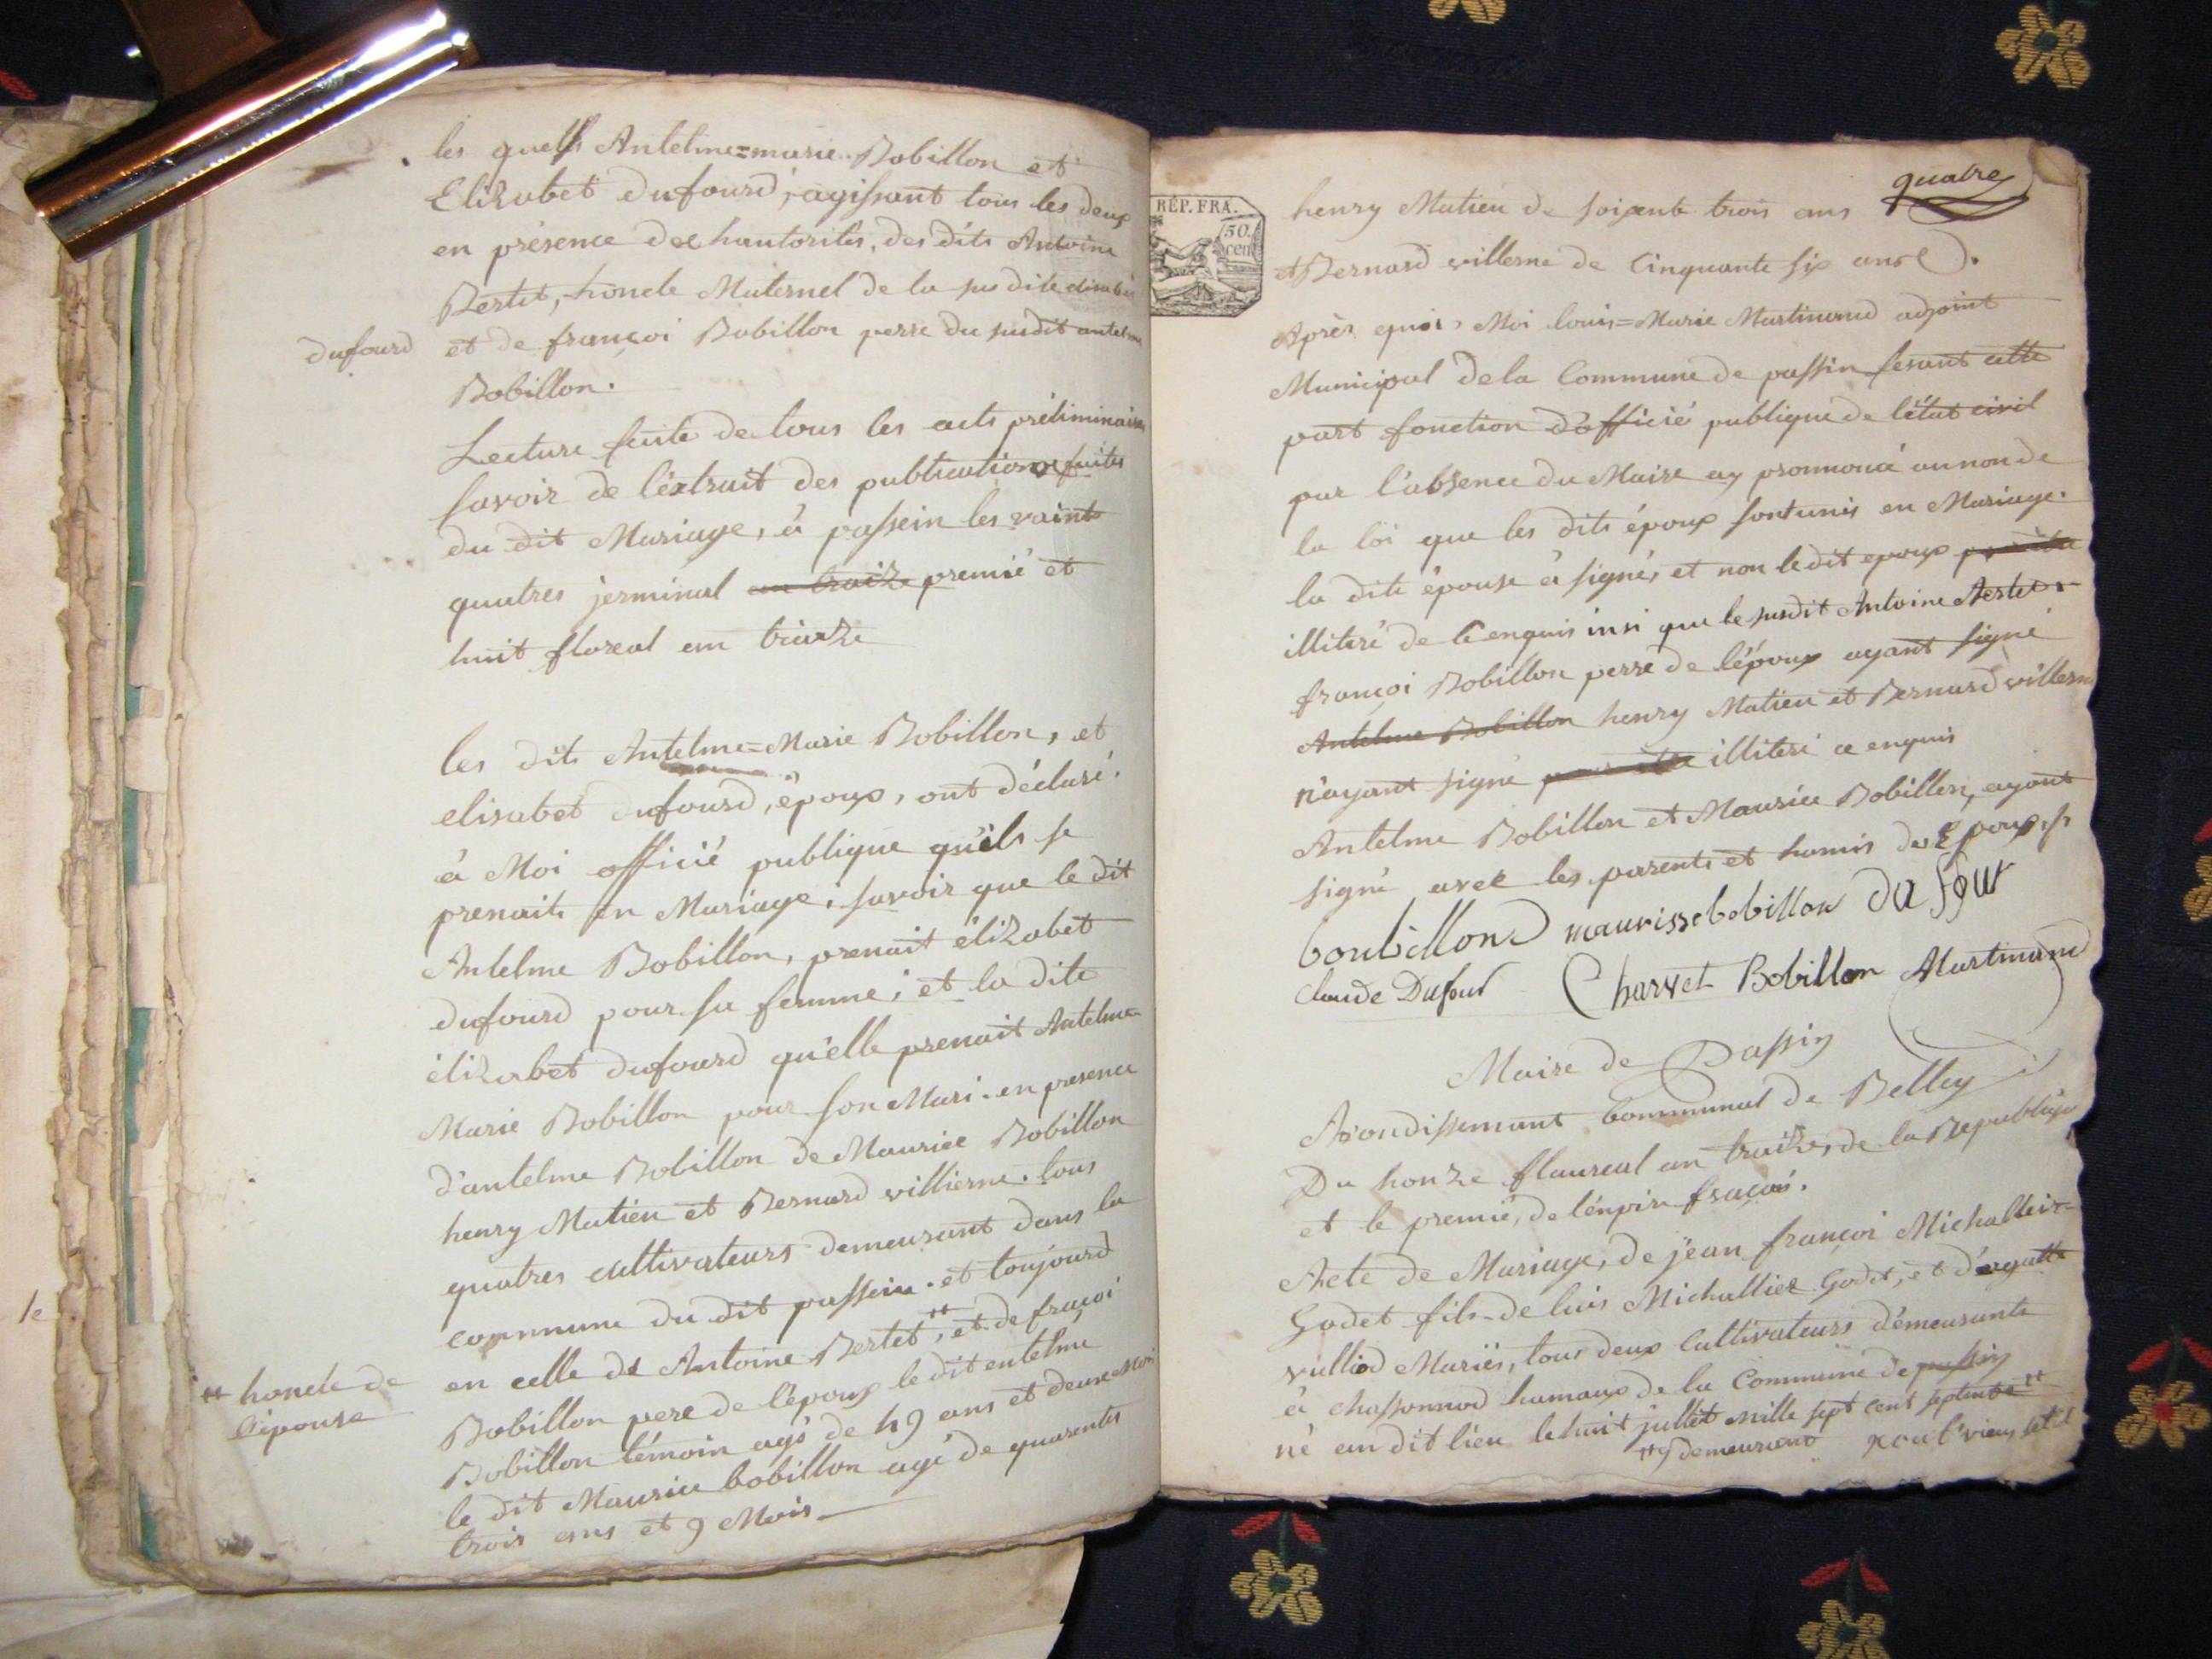 les quells Antelme=marie Bobillon et
Elizabet Dufourd, agissant tous les deux
en présence de hautorités, des dits Antoine
Bertet, honcle Maternel de la susdite
dufourd
et de françoi Bobillon perre du susdit antelme
Bobillon.
Lecture faite de tous les acts préliminaires
savoir de l'éxtrait des publications faites
du dit Mariage, à passein les vaint
quatres jerminal an traize premié et
huit floreal an traize
les dits Antelme=Marie Bobillon, et
elisabet dufourd, époux, ont déclaré
à Moi officié publique qu'ils se
prenaits en Mariage, savoir que le dit
Antelme Bobillon, prenait élizabet
dufourd pour sa femme, et la dite
élizabet dufourd qu'elle prenait Antelme
Marie Bobillon pour son Mari. en presence
d'antelme Bobillon de Maurice Bobillon
henry Matieu et Bernard villierme. tous
quatres cultivateurs demeurant dans la
commune du dit passein. et toujourd
en celle de Antoine Bertet, et de fraçoi
honcle de
l'épouse
Bobillon pere de l'époux le dit entelme
Bobillon témoin agé de 49 ans et deuxe Mois
le dit Maurice bobillon agé de quarente
trois ans et 9 Mois
1e
quatre
RÉP. FRA.
50.
cent
henry Matieu de soixente trois ans
et Bernard villerme de Cinquante six ans
Après quoi, Moi louis=Marie Martinand adjoint
Municipal de la Commune de passin fesant cette
part fonction d'officié publique de l'état civil
par l'absence du Maire ay pronnoncé au non de
la loi que les dits époux sont unis en Mariage.
la dite épouse à signés et non le dit epoux
illiteré de ce enquis insi que le susdit Antoine Bertet
françoi Bobillon perre de l'époux ayant signé
Antelme Bobillon henry Matieu et Bernard villerme
n'ayant signé illiteré ce enquis
Antelme Bobillon et Maurice Bobillon, ayant
signé avec les parents et homis des Epoux
boubillond maurisse bobillon du four
claude Dufour Charvet Bobillon Martinand
Maire de Passin
Arondissemant Communal de Belley
Du honze flaureal an traize, de la Republique
et le premié, de l'énpire fraçai.
Acte de Mariage, de jean françoi Michallier
Godet fils de luis Michallier Godet, et d'agatte
vulliod Mariés, tous deux Cultivateurs démeurants
à chassonnod hamaux de la Commune de passin
né au dit lieu le huit jullet mille sept cent septente
demeurant